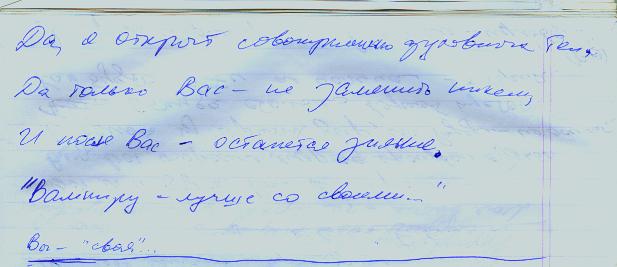 Да, я открыт совокуплению духовных тел,
Да только Вас - не заменить никем,
И после Вас - останется зияние.
"Вампиру - лучше со своими..."
Вы - "своя"...